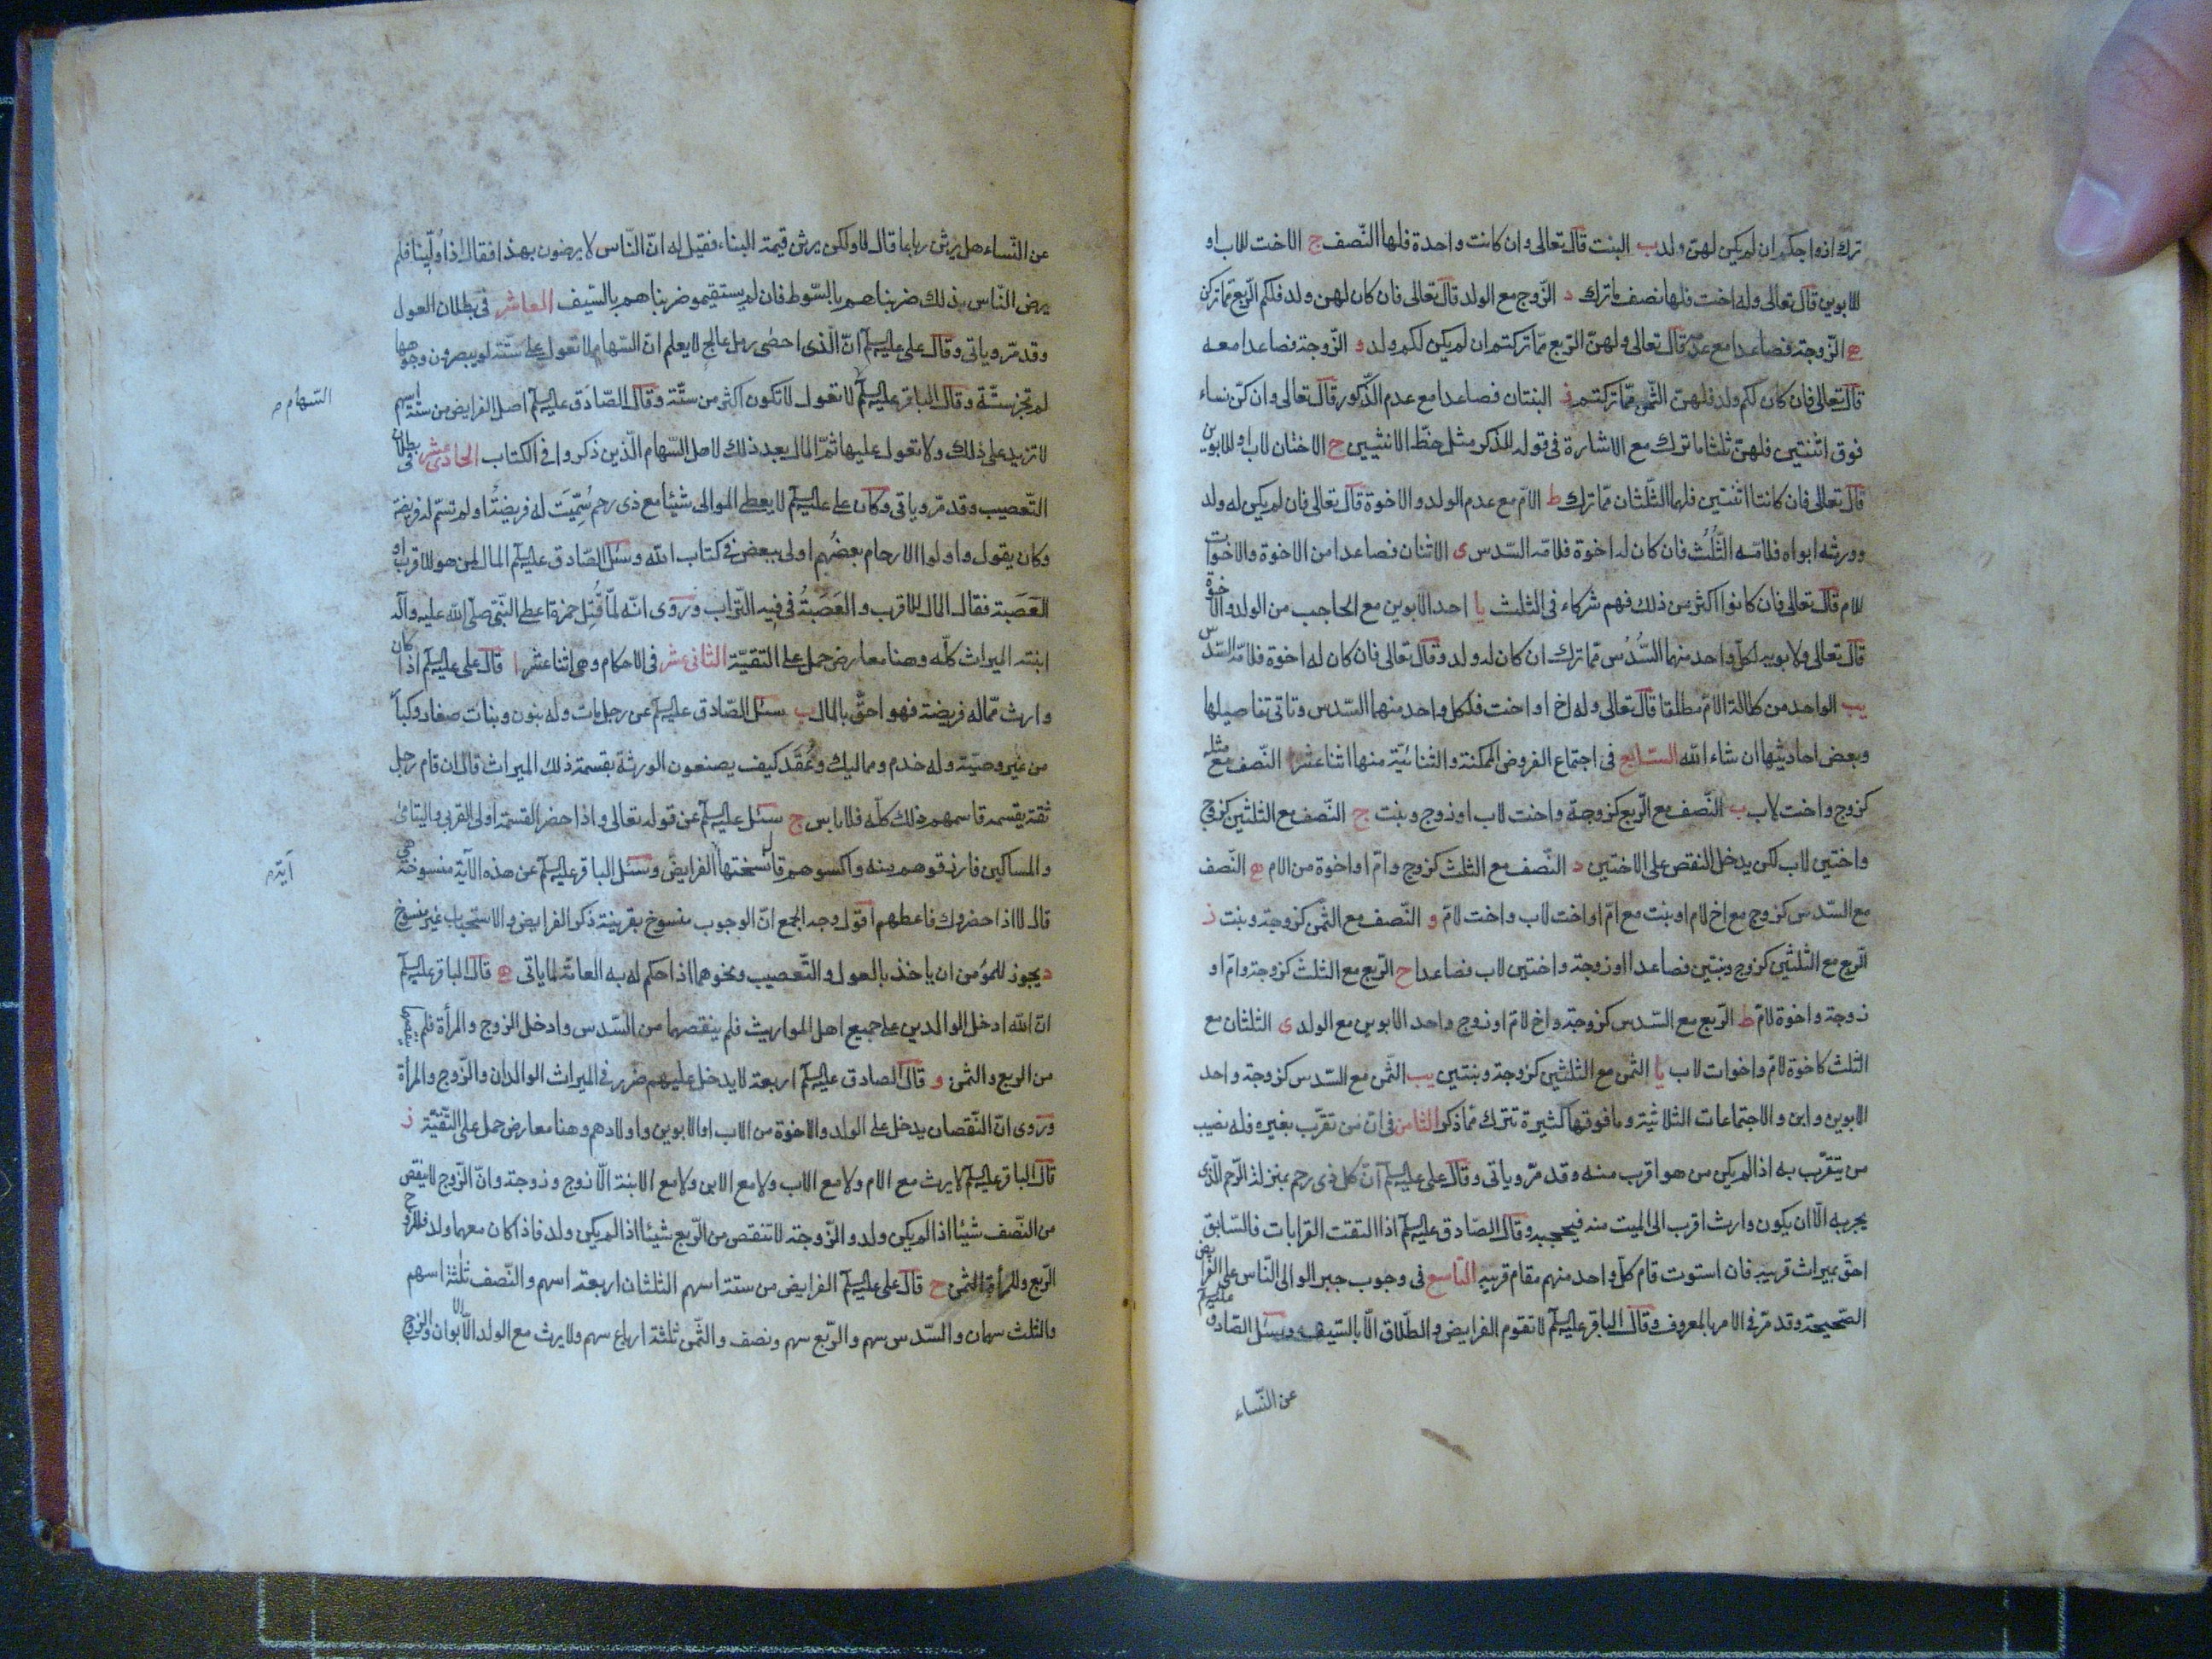 ترك ازواجكم ان لم يكن لهن ولد ب البنت قال تعالى وان كانت واحدة فلها النّصف ج الاخت للاب او
للابوين قال تعالى وله اخت فلها نصف ما ترك د الزّوج مع الولد قال تعالى فان كان لهن ولد فلكم الرّبع مما تركن
ه الزّوجة فصاعدا مع عدمه قال تعالى ولهنّ الرّبع ممّا تركتم ان لم يكن لكم ولد و الزّوجة فصاعدا معه
قال تعالى فان كان لكم ولد فلهنّ الثّمن ممّا تركتم ز البنتان فصاعدا مع عدم الذّكور قال تعالى وان كنّ نساء
فوق اثنتين فلهنّ ثلثا ما ترك مع الاشارة فى قوله للذكر مثل حظّ الانثيين ح الاختان لاب او للابوين
قال تعالى فان كانتا اثنتين فلهما الثّلثان ممّا ترك ط الامّ مع عدم الولد والاخوة قال تعالى فان لم يكن له ولد
وورثه ابواه فلامّه الثُّلُث فان كان له اخوة فلامّه السّدس ى الاثنان فصاعدا من الاخوة والاخوات
للام قال تعالى فان كانوا اكثر من ذلك فهم شركاء فى الثلث يا احد الابوين مع الحاجب من الولد والاخوة
قال تعالى ولابويه لكلّ واحد منهما السُّدُس ممّا ترك ان كان له ولد وقال تعالى فان كان له اخوة فلامّه السّدس
يب الواحد من كلالة الامّ مطلقا قال تعالى وله اخ او اخت فلكل واحد منهما السّدس وتاتى تفاصيلها
وبعض احاديثها ان شاء الله السّابع فى اجتماع الفروض الممكنة والثنائيّة منها اثنا عشر ا النّصف مع مثله
كزوج واخت لاب ب النّصف مع الرّبع كزوجة واخت لاب او زوج وبنت ج النّصف مع الثلثين كزوج
واختين لاب لكن يدخل النقص على الاختين د النّصف مع الثلث كزوج وامّ او اخوة من الام ه النّصف
مع السّدس كزوج مع اخ لام او بنت مع امّ او اخت لاب واخت لامّ و النّصف مع الثّمن كزوجة وبنت ز
الرّبع مع الثلثين كزوج وبنتين فصاعدا او زوجة واختين لاب فصاعدا ح الرّبع مع الثلث كزوجة وامّ او
زوجة واخوة لامّ ط الرّبع مع السّدس كزوجة واخ لامّ او زوج واحد الابوين مع الولد ى الثلثان مع
الثلث كاخوة لامّ واخوات لاب يا الثّمن مع الثلثين كزوجة وبنتين يب الثّمن مع السّدس كزوجة واحد
الابوين وابن والاجتماعات الثلاثيّة وما فوقها كثيرة تترك ممّا ذكر الثّامن فى انّ من تقرّب بغيره فله نصيب
من يتقرّب به اذا لم يكن من هو اقرب منه وقد مرّ وياتى وقال على عليه السلم انّ كل ذى رحم بمنزلة الرّحم الّذى
يجرّ به الّا ان يكون وارث اقرب الى الميت منه فيحجبه وقال الصّادق عليه السلم اذا التقت القرابات فالسّابق
احقّ بميراث قريبه فان استوت قام كلّ واحد منهم مقام قريبه التّاسع فى وجوب جبر الوالى النّاس على الفرايض
الصّحيحة وقد مرّ فى الامر بالمعروف وقال الباقر عليه السلم لا تقوم الفرايض والطّلاق الّا بالسّيف وسئل الصّادق عليه السلم
عن النّساء
عن النّساء هل يرثن رباعا قال لا ولكن يرثن قيمة البناء فقيل له انّ النّاس لا يرضون بهذا فقال اذا وُلّينا فلم
يرض النّاس بذلك ضربناهم بالسّوط فان لم يستقيموا ضربناهم بالسّيف العاشر فى بطلان العول
وقد مرّ وياتى وقال على عليه السلم انّ الّذى احصى رمل عالج لا يعلم انّ السّهام لا تعول على ستّة لو يبصرون وجوهها
لم تجز ستّة وقال الباقر عليه السلم لا تعول لا تكون اكثر من ستّة وقال الصّادق عليه السلم اصل الفرايض من ستّة اسهم
السّهام
لا تزيد على ذلك ولا تعول عليها ثمّ المال بعد ذلك لاهل السّهام الّذين ذكروا فى الكتاب الحادى عشر فى بطلان
التّعصيب وقد مرّ وياتى وكان على عليه السلم لا يعطى الموالى شيئا مع ذى رحم سُمّيَت له فريضةٌ او لم تسمّ له فريضة
وكان يقول واولوا الارحام بعضُهم اولى ببعض فى كتاب الله وسئل الصّادق عليه السلم المال لمن هو للاقرب او
العَصَبة فقال المال للاقرب والعَصَبةُ فى فيه التّراب وروى انّه لمّا قُتِل حمزة اعطى النّبىّ صلّى الله عليه وآله
ابنته الميراث كلّه وهنا معارض حمل على التقيّة الثانى عشر فى الاحكام وهى اثنا عشر ا قال على عليه السلم اذا كان
وارث ممّا له فريضة فهو احقّ بالمال ب سئل الصّادق عليه السلم عن رجل مات وله بنون وبنات صغار وكبار
من غير وصيّة وله خدم ومماليك وعُقَد كيف يصنعون الورثة بقسمة ذلك الميراث قال ان قام رجل
ثقة يقسمه قاسمهم ذلك كلّه فلا باس ج سئل عليه السلم عن قوله تعالى واذا حضر القسمة اولى القربى واليتامى
والمساكين فارزقوهم منه واكسوهم قال نسختها الفرايض وسئل الباقر عليه السلم عن هذه الآية منسوخة هى
آية
قال لا اذا حضروك فاعطهم اقول وجه الجمع انّ الوجوب منسوخ بقرينة ذكر الفرايض والاستحباب غير منسوخ
د يجوز للمؤمن ان ياخذ بالعول والتّعصيب ونحوهما اذا حكم له به العامّة لما ياتى ه قال الباقر عليه السلم
انّ الله ادخل الوالدين على جميع اهل المواريث فلم ينقصهما من السّدس وادخل الزوج والمرأة فلم ينقصهما
من الربع والثمن و قال الصادق عليه السلم اربعة لا يدخل عليهم ضرر فى الميراث الوالدان والزّوج والمرأة
وروى انّ النّقصان يدخل على الولد والاخوة من الاب او الابوين واولادهم وهنا معارض حمل على التّقيّة ز
قال الباقر عليه السلم لا يرث مع الام ولا مع الاب ولا مع الابن ولا مع الابنة الّا زوج وزوجة وانّ الزّوج لا ينقص
من النّصف شيئا اذا لم يكن ولد والزّوجة لا تنقص من الرّبع شيئا اذا لم يكن ولد فاذا كان معهما ولد فللزوج
الرّبع وللمرأة الثمن ح قال على عليه السلم الفرايض من ستة اسهم الثلثان اربعة اسهم والنّصف ثلثة اسهم
والثلث سهمان والسّدس سهم والرّبع سهم ونصف والثّمن ثلثة ارباع سهم ولا يرث مع الولد الّا الابوان والزوج